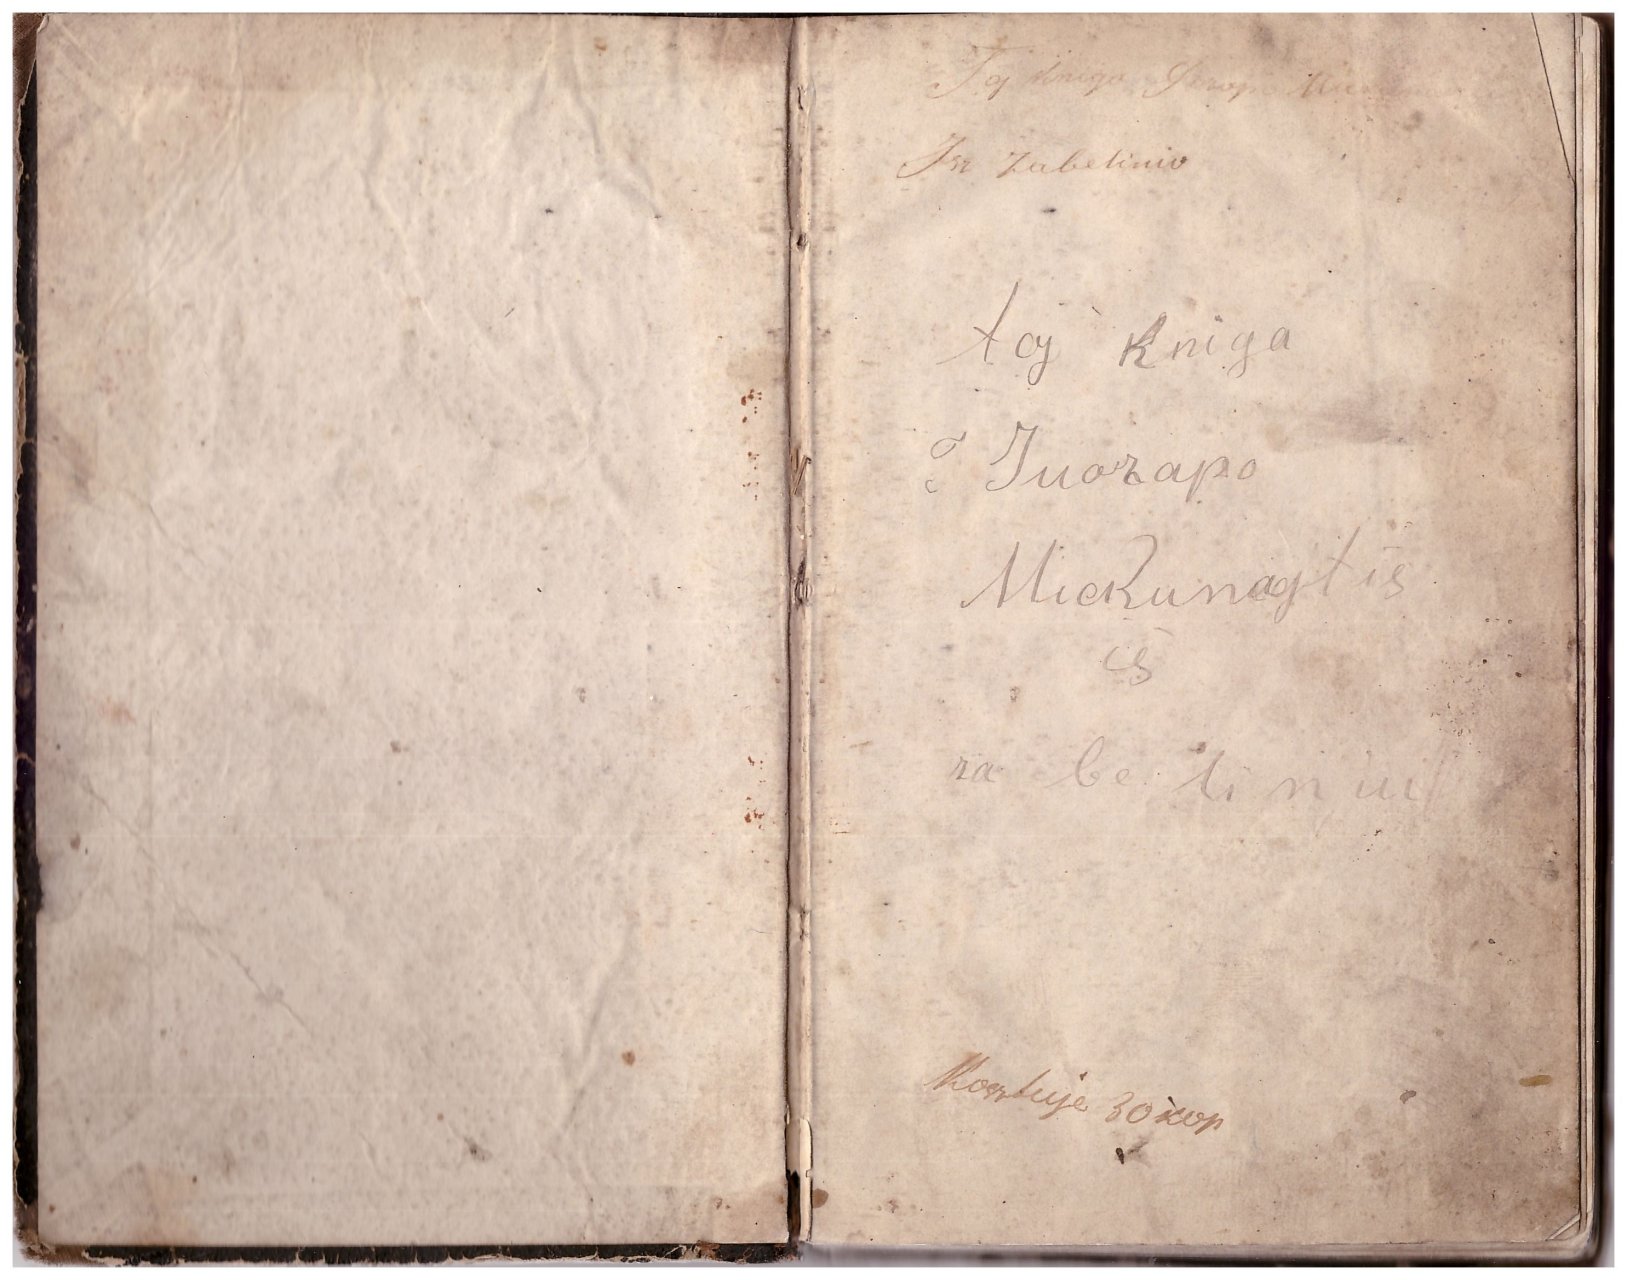 Toj kniga Juzapo
Isz Zabeliniu
toj kniga
Juozapo
Mickunaytis
iš
za be li n iu
Kosztuje 30 kop